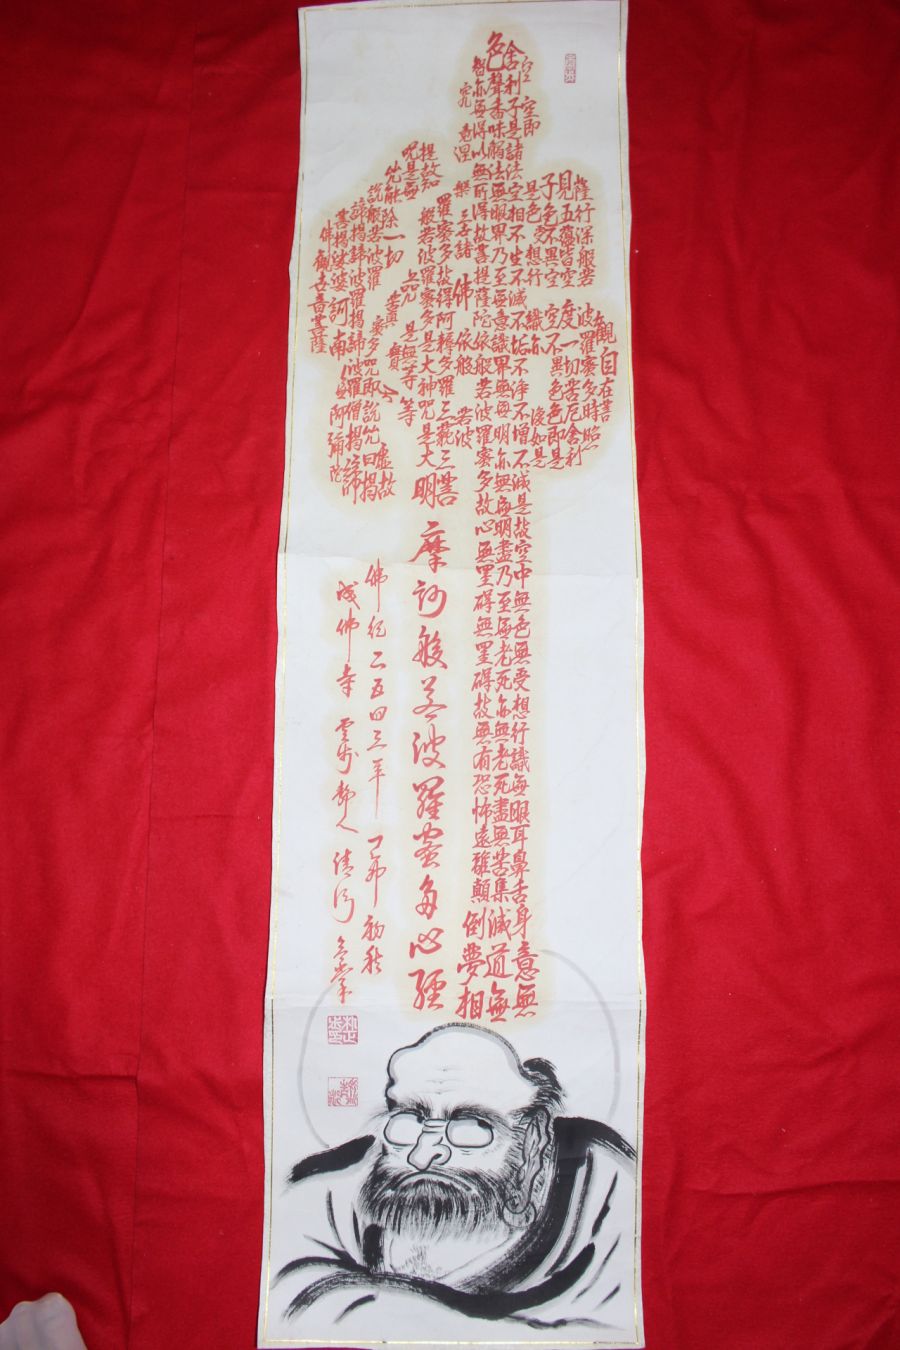 觀自在菩
薩行深般若波羅蜜多時照
見五蘊皆空度一切苦厄舍利
子色不異空空不異色色即是
空空即是色受想行識亦復如是
舍利子是諸法空相不生不滅不垢不淨不增不減是故空中無色無受想行識無眼耳鼻舌身意無
色聲香味觸法無眼界乃至無意識界無無明亦無無明盡乃至無老死亦無老死盡無苦集滅道無
智亦無得以無所得故菩提薩陀依般若波羅蜜多故心無罣碍無罣碍故無有恐怖遠離顛倒夢相
究竟涅槃三世諸佛依般若波
羅蜜多故得阿耨多羅三藐三菩
提故知般若波羅蜜多是大神咒是大明
咒是無上咒是無等等
咒能除一切苦真實不虛故
說般若波羅蜜多咒即說咒曰揭
諦揭諦波羅揭諦波羅僧揭諦
菩提娑婆訶南無阿彌陀
佛觀世音菩薩
摩訶般若波羅蜜多心經
佛紀二五四三年初秋
成佛寺雲步合掌